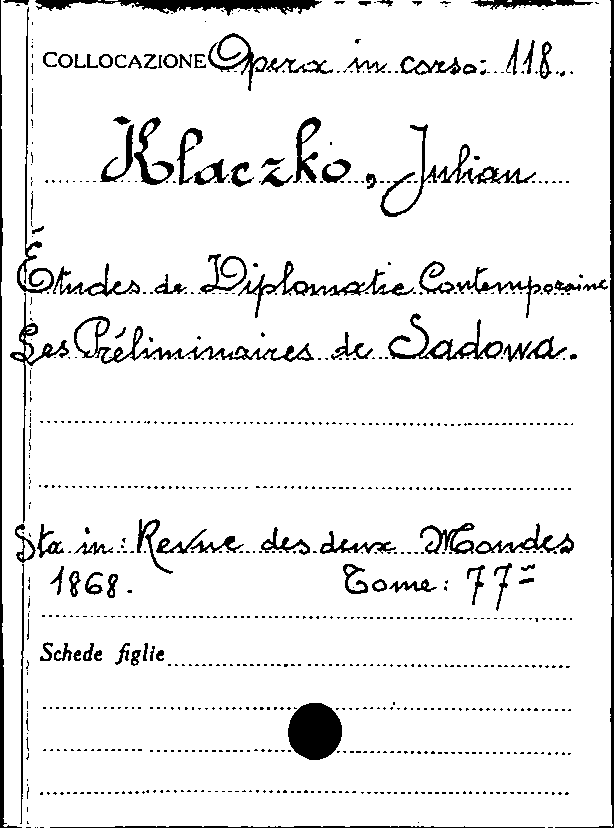 COLLOCAZIONE Opera in corso: 118.
Klaczko, Julian
Études de Diplomatie Contemporaine
Les Préliminaires de Sadowa.
Sta in: Revue des deux Mondes
1868. Tome: 77=
Schede figlie